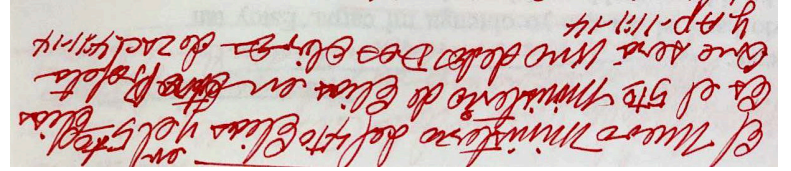 El Nuevo Ministerio del 4to Elias y el 5to Elias
Es el 5to Ministerio de Elias en otro Profeta
Que será Uno de los Dos Olivos de Zac. 4:11-14
y Ap. 11:1-14